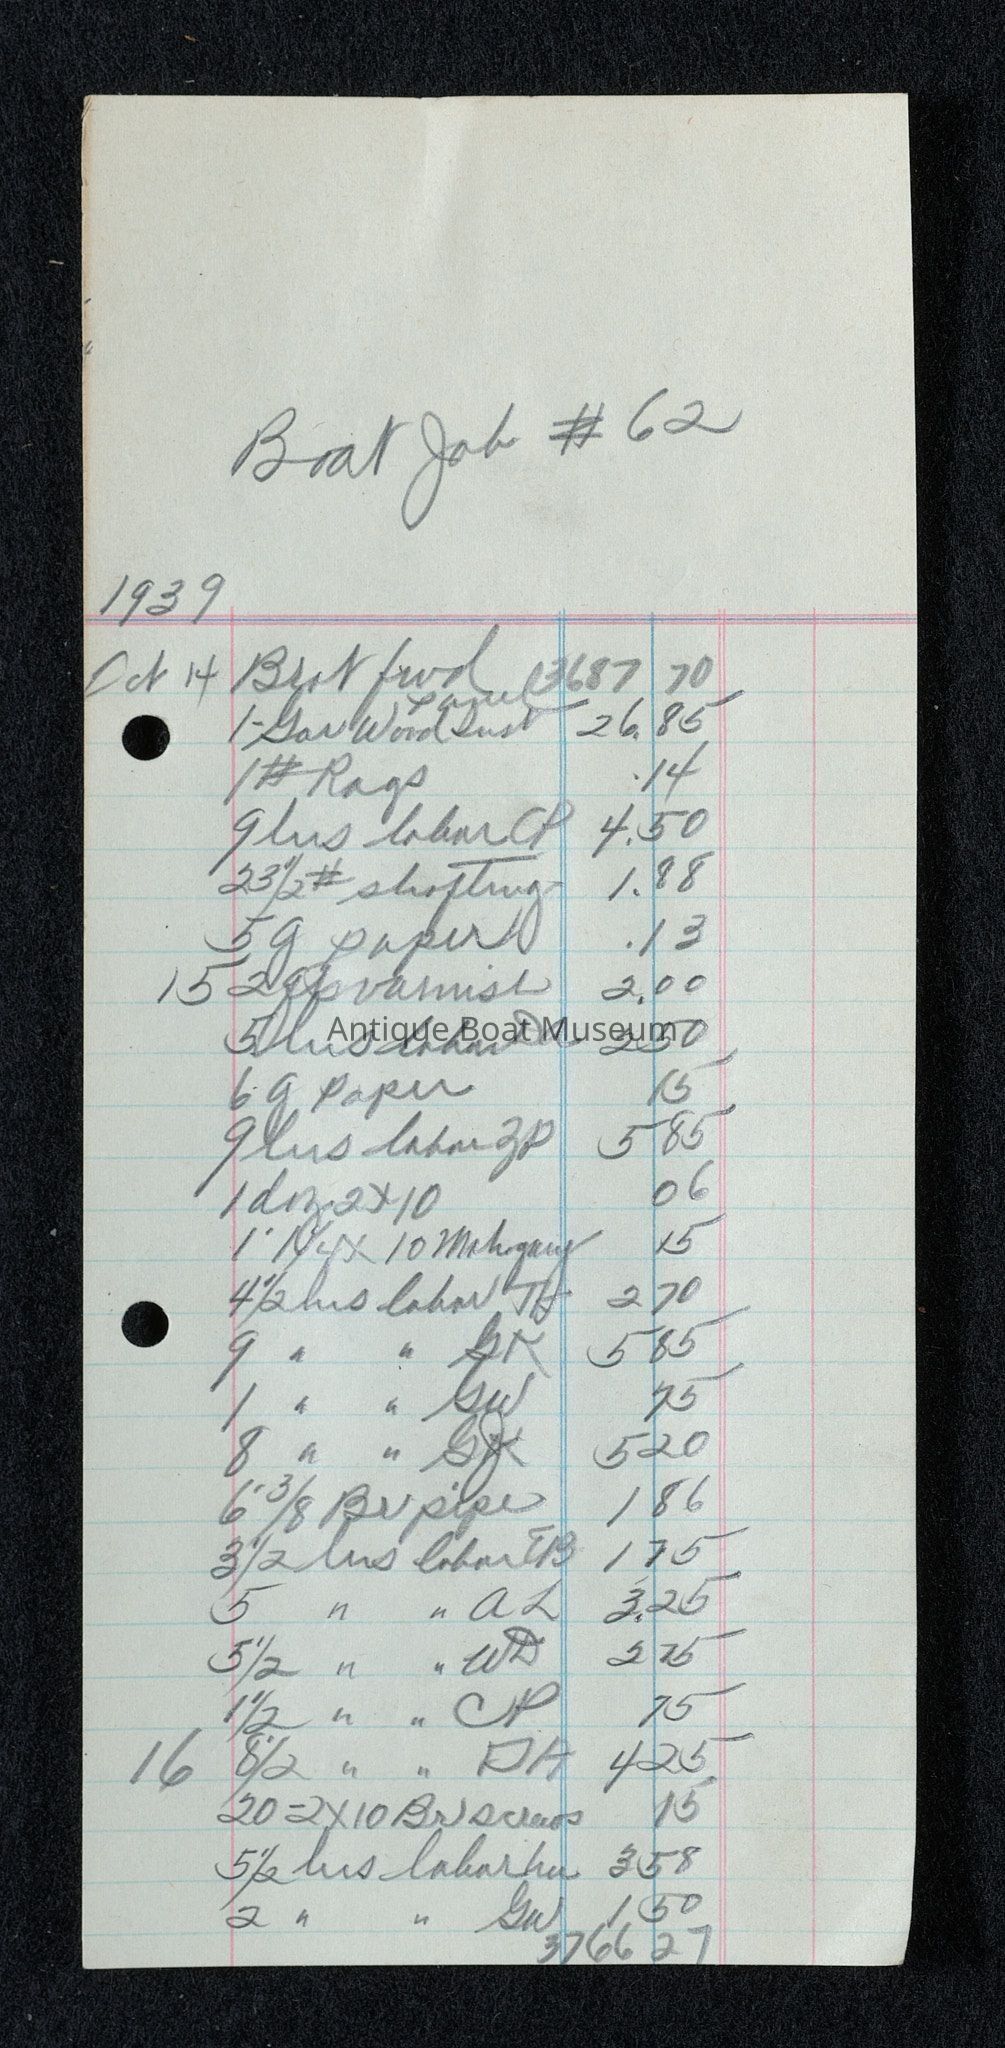 Boat Job # 62
1939
Oct 14 Brot frwd 3687 70
Panel
1- Gar Wood Inst 26.85
1# Rags .14
9 hrs labor CP 4.50
23 1/2# shafting 1.88
5 g paper .13
15 2 varnish 2.00
5 hrs labor 2 50
Antique Boat Museum
6 g paper 15
9 hrs labor 5 85
1 doz 2x10 06
1' 1 1/4 x 10 Mahogany 15
4 1/2 hrs labor TH 2 70
9 " " GK 5 85
1 " " GW 75
8 " " GK 5 20
6' 3/8 Br pipe 1 86
3 1/2 hrs labor FB 1 75
5 " " AL 3.25
5 1/2 " " WD 2 75
1 1/2 " " CP 75
16 8 1/2 " " DA 4 25
20 - 2x10 Br screws 15
5 1/2 hrs labor 3 58
2 " " GW 1 50
3766 27